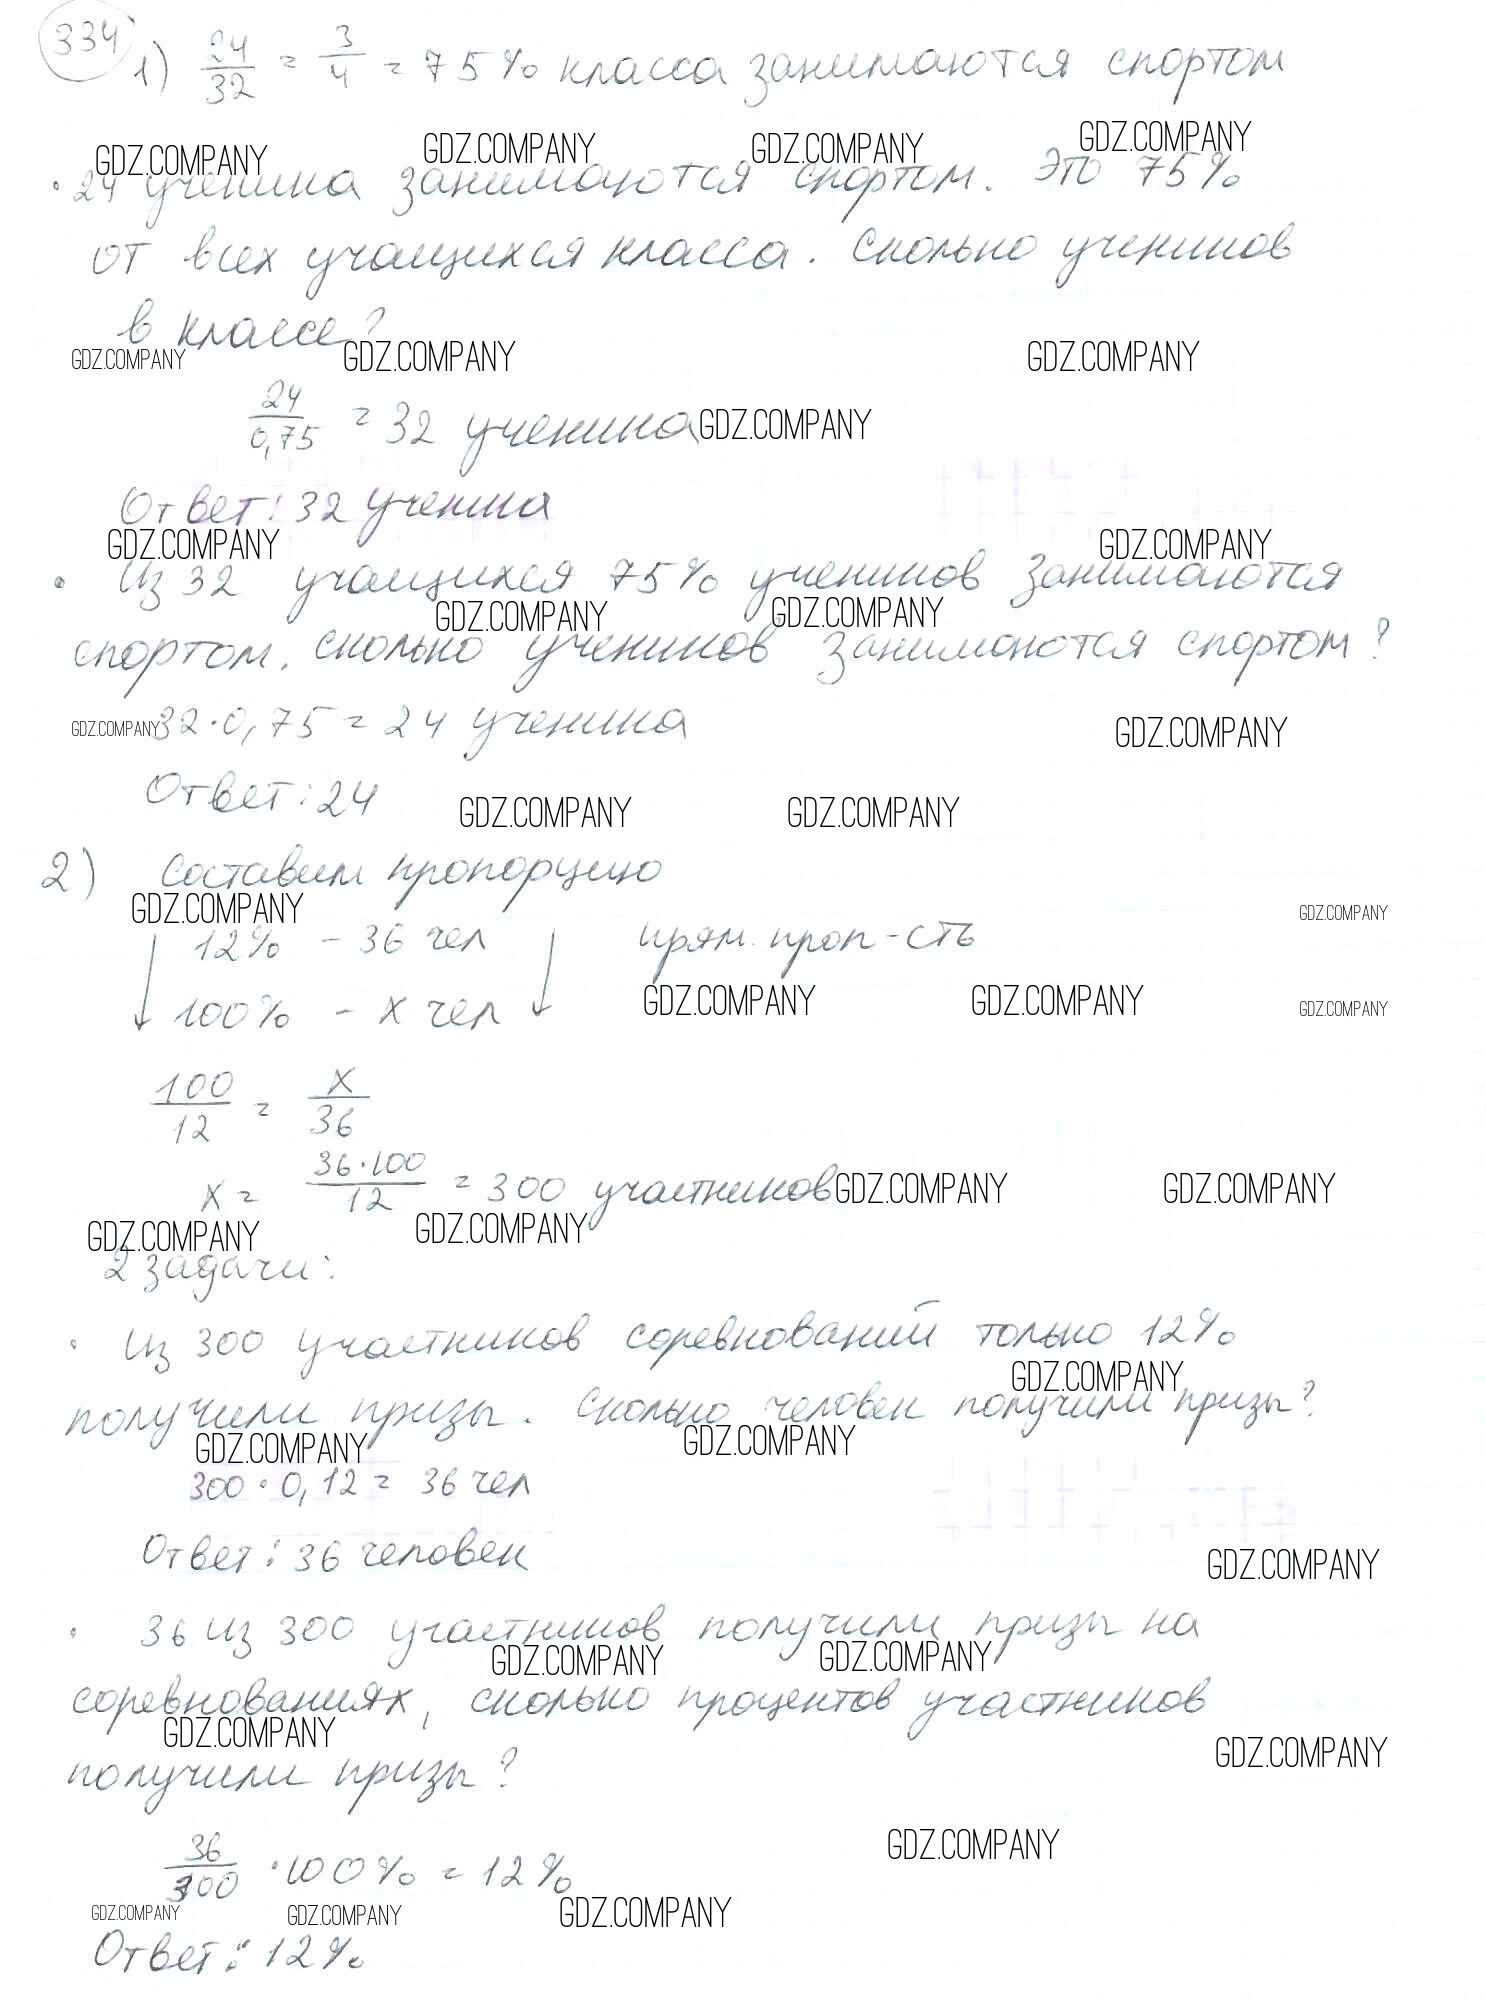 334
1) 24/32 = 3/4 = 75% класса занимаются спортом
GDZ.COMPANY GDZ.COMPANY GDZ.COMPANY GDZ.COMPANY
· 24 ученика занимаются спортом. Это 75%
от всех учащихся класса. Сколько учеников
в классе?
GDZ.COMPANY GDZ.COMPANY GDZ.COMPANY
24/0,75 = 32 ученика GDZ.COMPANY
Ответ: 32 ученика
GDZ.COMPANY GDZ.COMPANY
· Из 32 учащихся 75% учеников занимаются
GDZ.COMPANY GDZ.COMPANY
спортом. Сколько учеников занимаются спортом?
GDZ.COMPANY 32·0,75 = 24 ученика GDZ.COMPANY
Ответ: 24 GDZ.COMPANY GDZ.COMPANY
2) Составим пропорцию
GDZ.COMPANY GDZ.COMPANY
↓ 12% - 36 чел ↓ прям. проп-сть
100% - x чел GDZ.COMPANY GDZ.COMPANY GDZ.COMPANY
100/12 = x/36
x = 36·100/12 = 300 участников GDZ.COMPANY GDZ.COMPANY
GDZ.COMPANY GDZ.COMPANY
2 задачи:
· Из 300 участников соревнований только 12%
GDZ.COMPANY
получили призы. Сколько человек получили призы?
GDZ.COMPANY GDZ.COMPANY
300·0,12 = 36 чел
Ответ: 36 человек GDZ.COMPANY
· 36 из 300 участников получили призы на
GDZ.COMPANY GDZ.COMPANY
соревнованиях, сколько процентов участников
GDZ.COMPANY GDZ.COMPANY
получили призы?
GDZ.COMPANY
36/300 ·100% = 12%
GDZ.COMPANY GDZ.COMPANY GDZ.COMPANY
Ответ: 12%